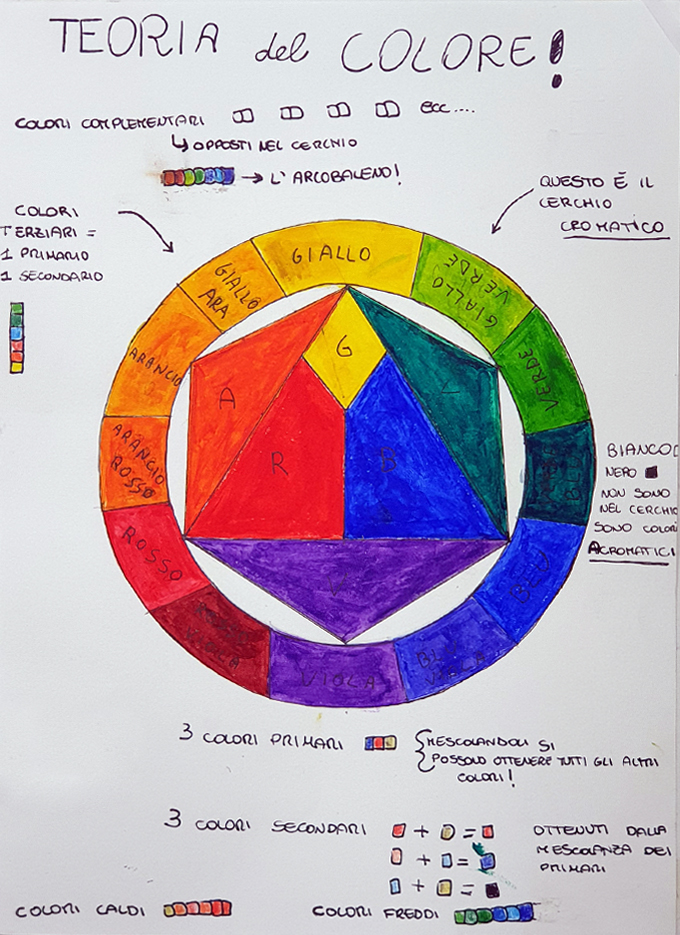 TEORIA del COLORE!
COLORI COMPLEMENTARI ecc....
↳ OPPOSTI NEL CERCHIO
→ L'ARCOBALENO!
QUESTO È IL
CERCHIO
CROMATICO
COLORI
TERZIARI =
1 PRIMARIO
1 SECONDARIO
GIALLO
GIALLO
VERDE
GIALLO
ARA
VERDE
ARANCIO
G
A
V
R
B
V
ARANCIO
ROSSO
BLU
BIANCO
NERO
NON SONO
NEL CERCHIO
SONO COLORI
ACROMATICI
ROSSO
BLU
VIOLA
BLU
VIOLA
3 COLORI PRIMARI
MESCOLANDOLI SI
POSSONO OTTENERE TUTTI GLI ALTRI
COLORI!
3 COLORI SECONDARI
+ =
+ =
+ =
OTTENUTI DALLA
MESCOLANZA DEI
PRIMARI
COLORI CALDI
COLORI FREDDI